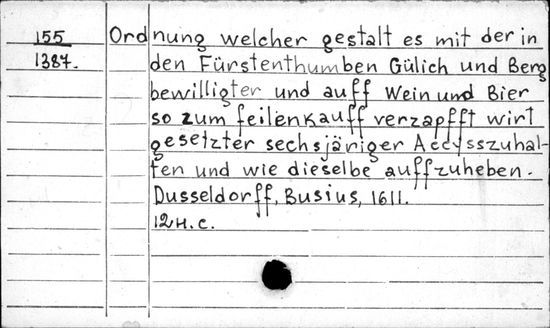 155 Ordnung welcher gestalt es mit der in
1387. den Fürstenthumben Gülich und Berg
bewilligter und auff Wein und Bier
so zum feilenkauff verzapfft wirt
gesetzter sechsjäriger Accysszuhal-
ten und wie dieselbe auffzuheben.
Dusseldorff, Busius, 1611.
12 H. c.